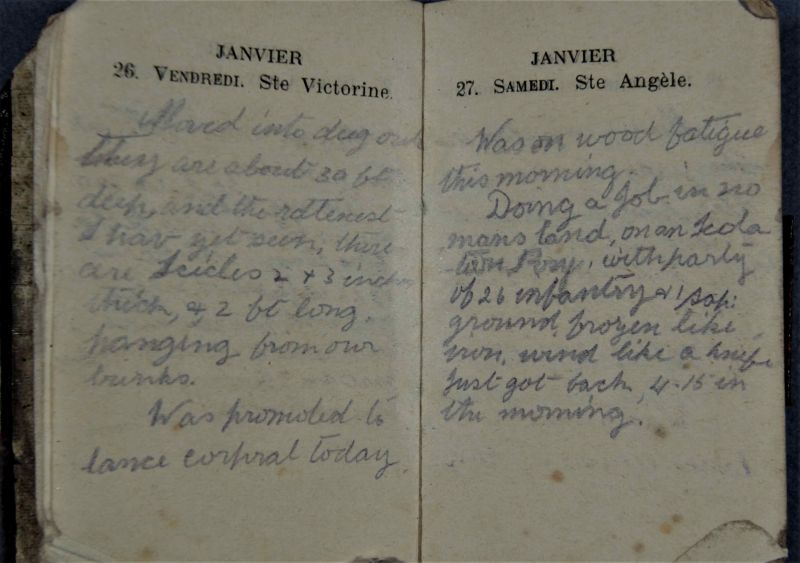 JANVIER
26. VENDREDI. Ste Victorine.
Moved into dug out
they are about 30 ft
deep, and the rottenest
I hav yet seen, there
are Icicles 2 & 3 inches
thick, & 2 ft long.
hanging from our
bunks.
Was promoted to
lance corpral today.
JANVIER
27. SAMEDI. Ste Angèle.
Was on wood fatigue
this morning.
Doing a job in no
mans land, on an Isola
tion, with party
of 26 infantry & 1 Sap:
ground frozen like
iron, wind like a knife
Just got back, 4-15 in
the morning.